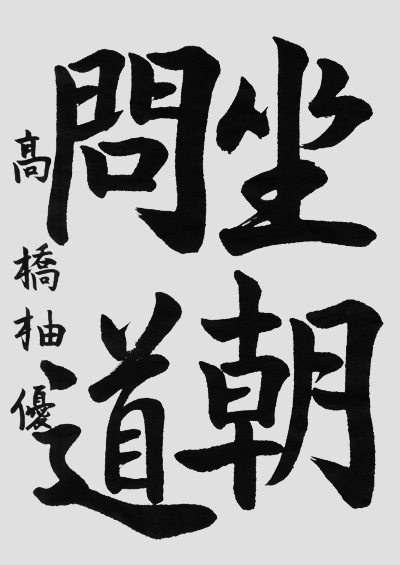 坐朝
問道
髙橋柚優